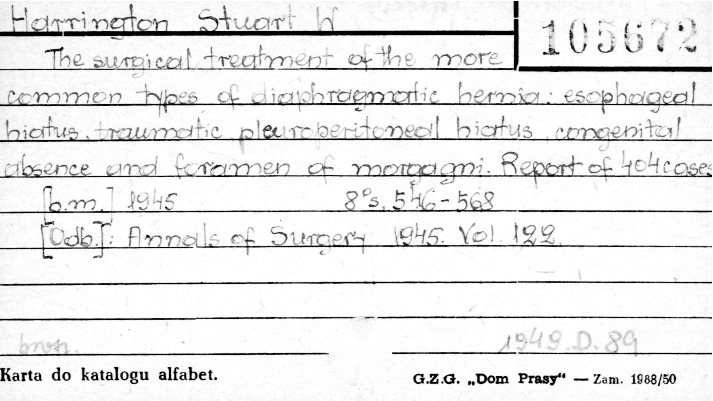 Harrington Stuart W
105672
The surgical treatment of the more
common types of diaphragmatic hernia: esophageal
hiatus, traumatic pleuroperitoneal hiatus, congenital
absence and foramen of morgagni. Report of 404 cases
[b.m.] 1945 8°s. 546-568
[Odb.]: Annals of Surgery 1945. Vol. 122.
brosz.
1949.D.89
Karta do katalogu alfabet.
G.Z.G. „Dom Prasy" — Zam. 1988/50